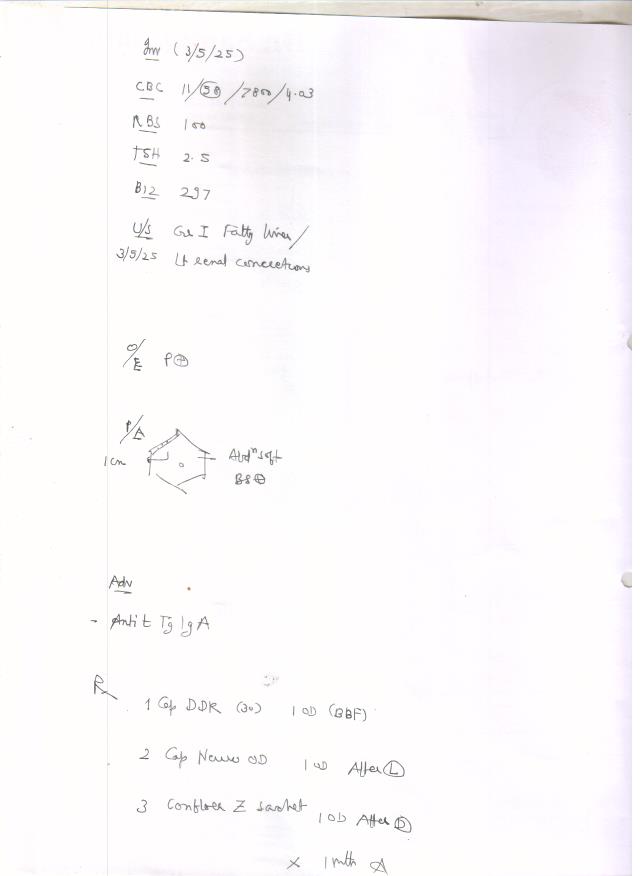 Inv (3/5/25)
CBC 11/90/7800/4.03
RBS 100
TSH 2.5
B12 297
U/S Gr I Fatty liver/
3/5/25 Lt renal concretions
O/E P⊕
P/A
1 cm Abdⁿ soft
BS⊕
Adv
- Anti t Tg IgA
Rx
1 Cap DDR (30) 1 OD (BBF)
2 Cap Neuro OD 1 OD After Ⓛ
3 Conflora Z sachet 1 OD After Ⓓ
x 1 mth